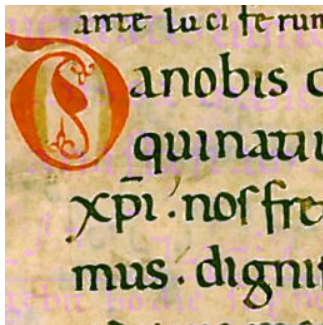 ante luciferum
Da nobis
qui natiu
xp̄i. noſ fre
mus. digni